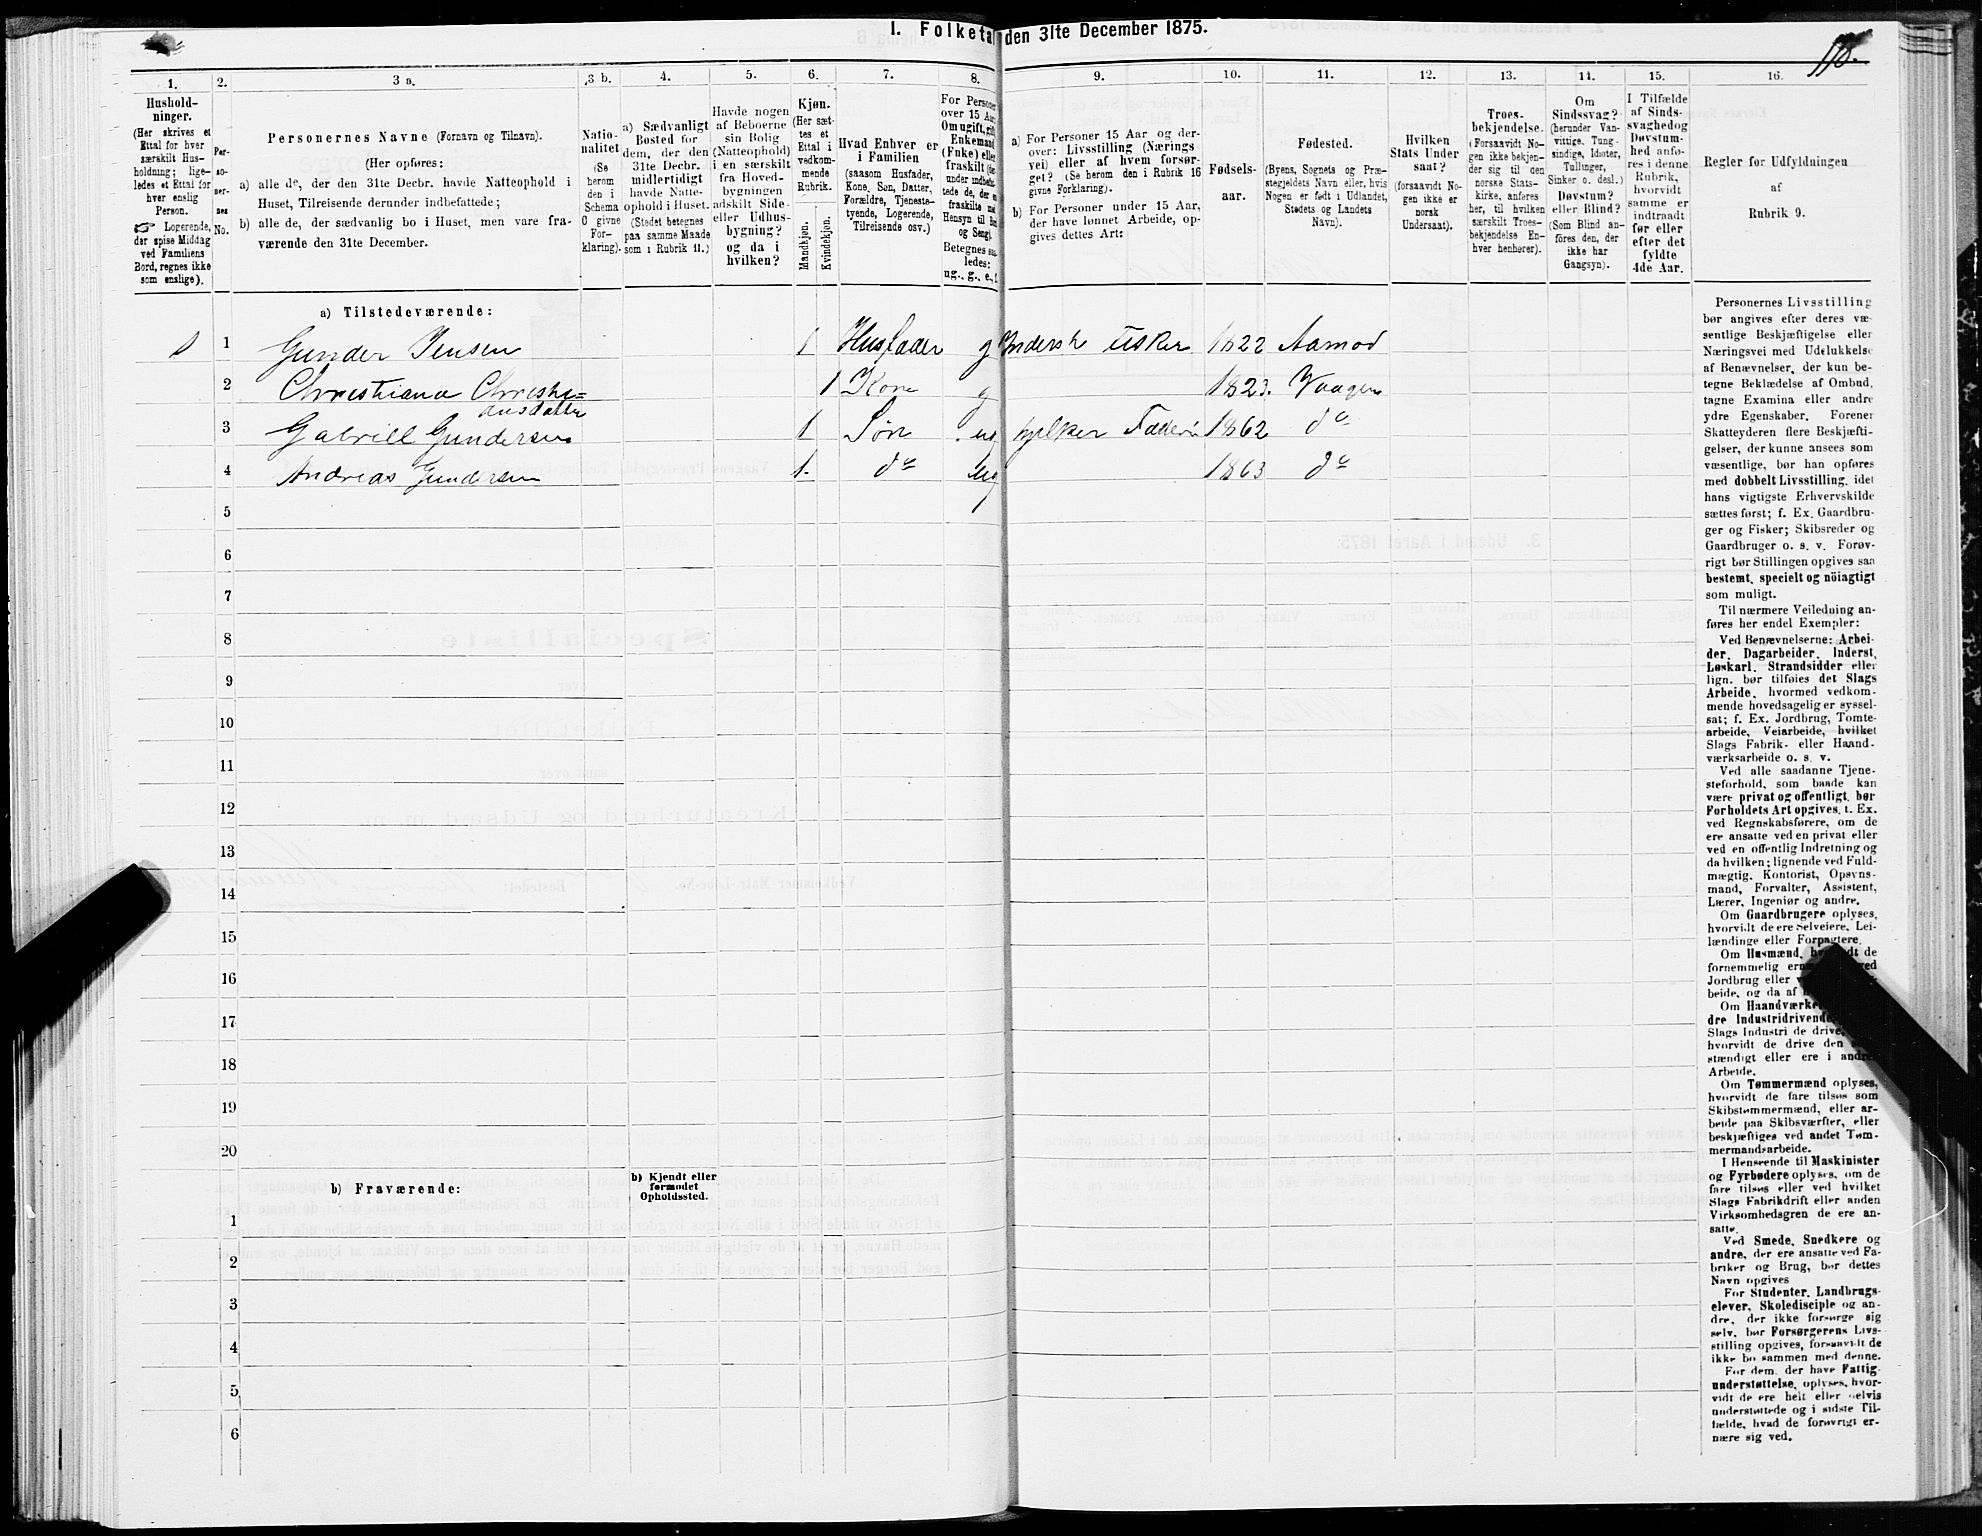 I. Folketal den 31te December 1875.
1. 2. 3 a. 3 b. 4. 5. 6. 7. 8. 9. 10. 11. 12. 13. 14. 15. 16.
Hushold-
ninger.
(Her skrives et
Ettal for hver
særskilt Hus-
holdning; lige-
ledes et Ettal for
hver enslig
Person.
☞ Logerende,
der spise Middag
ved Familiens
Bord, regnes ikke
som enslige).
Per-
so-
ner-
nes
No.
Personernes Navne (Fornavn og Tilnavn).
(Her opføres:
a) alle de, der den 31te Decbr. havde Natteophold i
Huset, Tilreisende derunder indbefattede;
b) alle de, der sædvanlig bo i Huset, men vare fra-
værende den 31te December.
Natio-
nalitet
(Se
herom
den i
Schema
O givne
For-
klaring).
a) Sædvanligt
Bosted for
dem, der den
31te Decbr.
midlertidigt
havde Natte-
ophold i Huset.
(Stedet betegnes
paa samme Maade
som i Rubrik 11.)
Havde nogen
af Beboerne
sin Bolig
(Natteophold)
i en særskilt
fra Hoved-
bygningen
adskilt Side-
eller Udhus-
bygning?
og da i
hvilken?
Kjøn.
(Her sæt-
tes et
Ettal i
vedkom-
mende
Rubrik.
Mandkjøn.
Kvindekjøn.
Hvad Enhver er
i Familien
(saasom Husfader,
Kone, Søn, Datter,
Forældre, Tjeneste-
tyende, Logerende,
Tilreisende osv.)
For Personer
over 15 Aar:
Om ugift, gift,
Enkemand
(Enke) eller
fraskilt
Betegnes saa-
ledes:
ug., g., e., f.
a) For Personer 15 Aar og der-
over: Livsstilling (Nærings
vei) eller af hvem forsør-
get? (Se herom den i Rubrik 16
givne Forklaring).
b) For Personer under 15 Aar,
der have lønnet Arbeide, op-
gives dettes Art:
Fødsels-
aar.
Fødested.
(Byens, Sognets og Præ-
stegjeldets Navn eller, hvis
Nogen er født i Udlandet,
Stedets og Landets
Navn).
Hvilken
Stats Under
saat?
(forsaavidt No-
gen ikke er
norsk
Undersaat).
Troes-
bekjendelse.
(Forsaavidt No-
gen ikke bekjen-
der sig til den
norske Stats-
kirke, anføres
her, til hvilken
særskilt Troes-
bekjendelse En-
hver henhører).
Om
Sindssvag?
(herunder Van-
vittige, Tung-
sindige, Idioter,
Tullinger,
Sinker o. desl.)
Døvstum?
eller Blind?
(Som Blind an-
føres den, der
ikke har
Gangsyn).
I Tilfælde
af Sinds-
svaghed og
Døvstum-
hed anfø-
res i denne
Rubrik,
hvorvidt
samme er
indtraadt
før eller
efter det
fyldte
4de Aar.
Regler for Udfyldningen
af
Rubrik 9.
a) Tilstedeværende:
1 Gunder Jensen 1 Husfader g Inderst Fisker 1822 Aamod
2 Christiana Christi=
ansdatter 1 Kone g 1823. Vaagen
3 Gabriell Gundersen 1 Søn ug hjelper Faderen 1862 do
4 Andreas Gundersen 1 do ug 1863 do
5
6
7
8
9
10
11
12
13
14
15
16
17
18
19
20
b) Fraværende:
b) Kjendt eller
formodet
Opholdssted.
1
2
3
4
5
6
Personernes Livsstilling
bør angives efter deres væ-
sentlige Beskjæftigelse eller
Næringsvei med Udelukkelse
af Benævnelser, der kun be-
tegne Beklædelse af Ombud,
tagne Examina eller andre
ydre Egenskaber. Forener
Skatteyderen flere Beskjæfti-
gelser, der kunne ansees som
væsentlige, bør han opføres
med dobbelt Livsstilling, idet
hans vigtigste Erhvervskilde
sættes først; f. Ex. Gaardbru-
ger og Fisker; Skibsreder og
Gaardbruger o. s. v. Forøv-
rigt bør Stillingen opgives saa
bestemt, specielt og nöiagtigt
som muligt.
Til nærmere Veiledning an-
føres her endel Exempler:
Ved Benævnelserne: Arbei-
der, Dagarbeider, Inderst,
Løskarl, Strandsidder eller
lign. bør tilføies det Slags
Arbeide, hvormed vedkom-
mende hovedsagelig er syssel-
sat; f. Ex. Jordbrug, Tomte-
arbeide, Veiarbeide, hvilket
Slags Fabrik- eller Haand-
værksarbeide o. s. v.
Ved alle saadanne Tjene-
steforhold, som baade kan
være privat og offentligt, bør
Forholdets Art opgives, t. Ex.
ved Regnskabsførere, om de
ere ansatte ved en privat eller
ved en offentlig Indretning og
da hvilken; lignende ved Fuld-
mægtig, Kontorist, Opsyns-
mand, Forvalter, Assistent,
Lærer, Ingeniør og andre.
Om Gaardbrugere oplyses,
hvorvidt de ere Selveiere, Lei-
lændinge eller Forpagtere.
Om Husmænd, de
fornemmelig ved
Jordbrug eller
beide, og da af
Om Haandværke
dre Industridrivende
Slags Industri de drive,
hvorvidt de drive den
stændigt eller ere i andres
Arbeide.
Om Tømmermænd oplyses,
hvorvidt de fare tilsøs som
Skibstømmermænd, eller ar-
beide paa Skibsværfter, eller
beskjæftiges ved andet Tøm-
mermandsarbeide.
I Henseende til Maskinister
og Fyrbødere oplyses, om de
fare tilsøs eller ved hvilket
Slags Fabrikdrift eller anden
Virksomhedsgren de ere an-
satte.
Ved Smede, Snedkere og
andre, der ere ansatte ved Fa-
briker og Brug, bør dettes
Navn opgives
For Studenter, Landbrugs-
elever, Skoledisciple og an-
dre, der ikke forsørge sig
selv, bør Forsørgerens Livs-
stilling opgives, forsaavidt de
ikke bo sammen med denne.
For dem, der have Fattig-
understøttelse, oplyses, hvor-
vidt de ere helt eller delvis
understøttede og i sidste Til-
fælde, hvad de forøvrigt er-
nære sig ved.